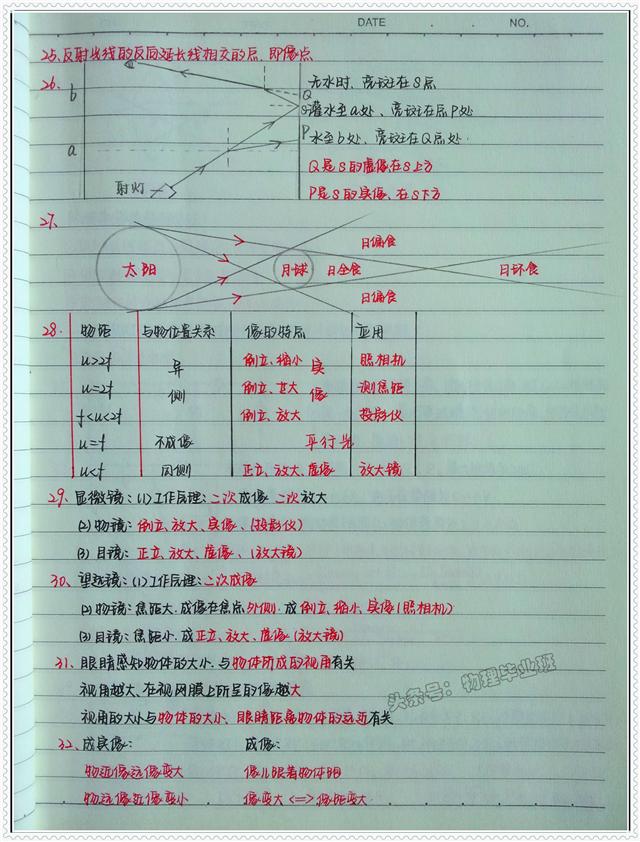 DATE . . NO.
25、反射光线的反向延长线相交的点,即像点
26、
b
a
射灯
Q
S
P
无水时、亮斑在S点
灌水至a处、亮斑在点P处
水至b处、亮斑在Q点处.
Q是S的虚像在S上方
P是S的实像、在S下方
27、
太阳
月球
日全食
日偏食
日环食
日偏食
28、 物距 与物位置关系 像的特点 应用
u>2f 异 倒立、缩小 实 照相机
u=2f 侧 倒立、等大 像 测焦距
f<u<2f 倒立、放大 投影仪
u=f 不成像 平行光
u<f 同侧 正立、放大、虚像 放大镜
29、显微镜:(1)工作原理:二次成像 二次放大
(2)物镜:倒立、放大、实像、(投影仪)
(3)目镜:正立、放大、虚像、(放大镜)
30、望远镜:(1)工作原理:二次成像
(2)物镜:焦距大.成像在焦点外侧.成倒立、缩小、实像(照相机)
(3)目镜:焦距小.成正立、放大、虚像(放大镜)
31、眼睛感知物体的大小.与物体所成的视角有关
视角越大、在视网膜上所呈的像越大
视角的大小与物体的大小、眼睛距离物体的远近有关
32、成实像: 成像:
物近像远像变大 像儿跟着物体跑
物远像近像变小 像变大<=>像距变大
头条号:物理毕业班